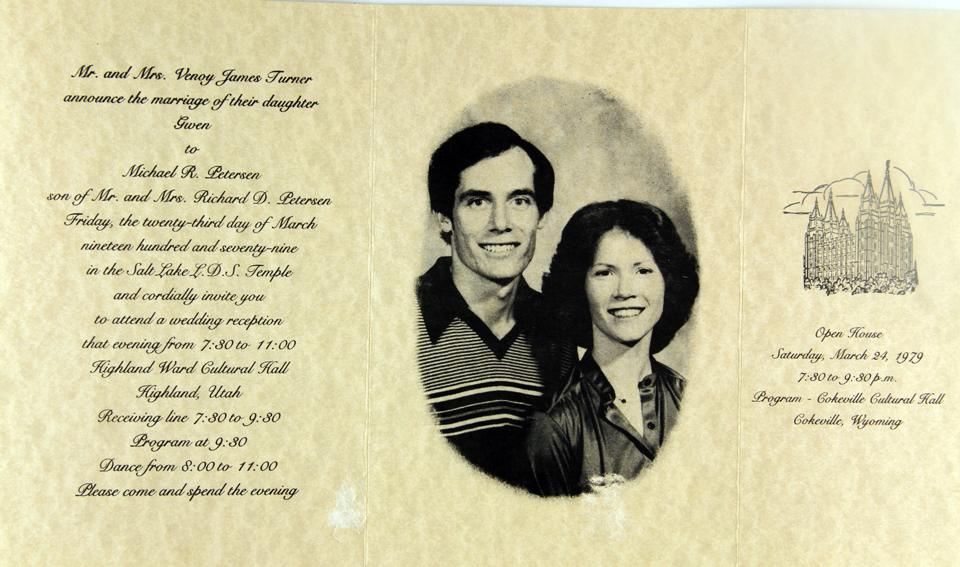 Mr. and Mrs. Venoy James Turner
announce the marriage of their daughter
Gwen
to
Michael R. Petersen
son of Mr. and Mrs. Richard D. Petersen
Friday, the twenty-third day of March
nineteen hundred and seventy-nine
in the Salt Lake L.D.S. Temple
and cordially invite you
to attend a wedding reception
that evening from 7:30 to 11:00
Highland Ward Cultural Hall
Highland, Utah
Receiving line 7:30 to 9:30
Program at 9:30
Dance from 8:00 to 11:00
Please come and spend the evening
Open House
Saturday, March 24, 1979
7:30 to 9:30 p.m.
Program - Cokeville Cultural Hall
Cokeville, Wyoming